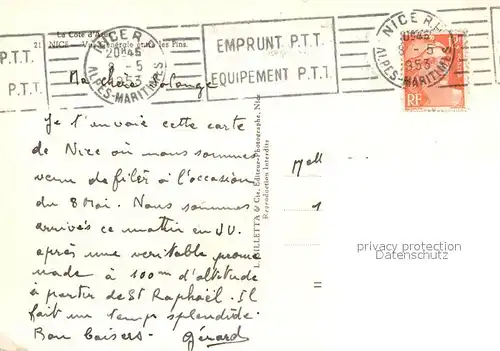 La Côte d'Azur
21. NICE - Vue Générale et les Pins.
P.T.T.
P.T.T.
NICE R.P.
20H45
8-5
1953
ALPES-MARITIMES
EMPRUNT P.T.T.
EQUIPEMENT P.T.T.
NICE R.P.
20H45
8-5
1953
ALPES-MARITIMES
RF
Ma chère Solange
Je t'envoie cette carte
de Nice où nous sommes
venu défiler à l'occasion
du 8 Mai. Nous sommes
arrivés ce mattin en
après une veritable prome
nade à 100m d'altitude
à partir de St Raphaël. Il
fait un temps splendide.
Bon baisers - Gérard
L. GILLETTA & Cie, Editeur-Photographe, Nice
Reproduction Interdite
Mell
1
privacy protection
Datenschutz